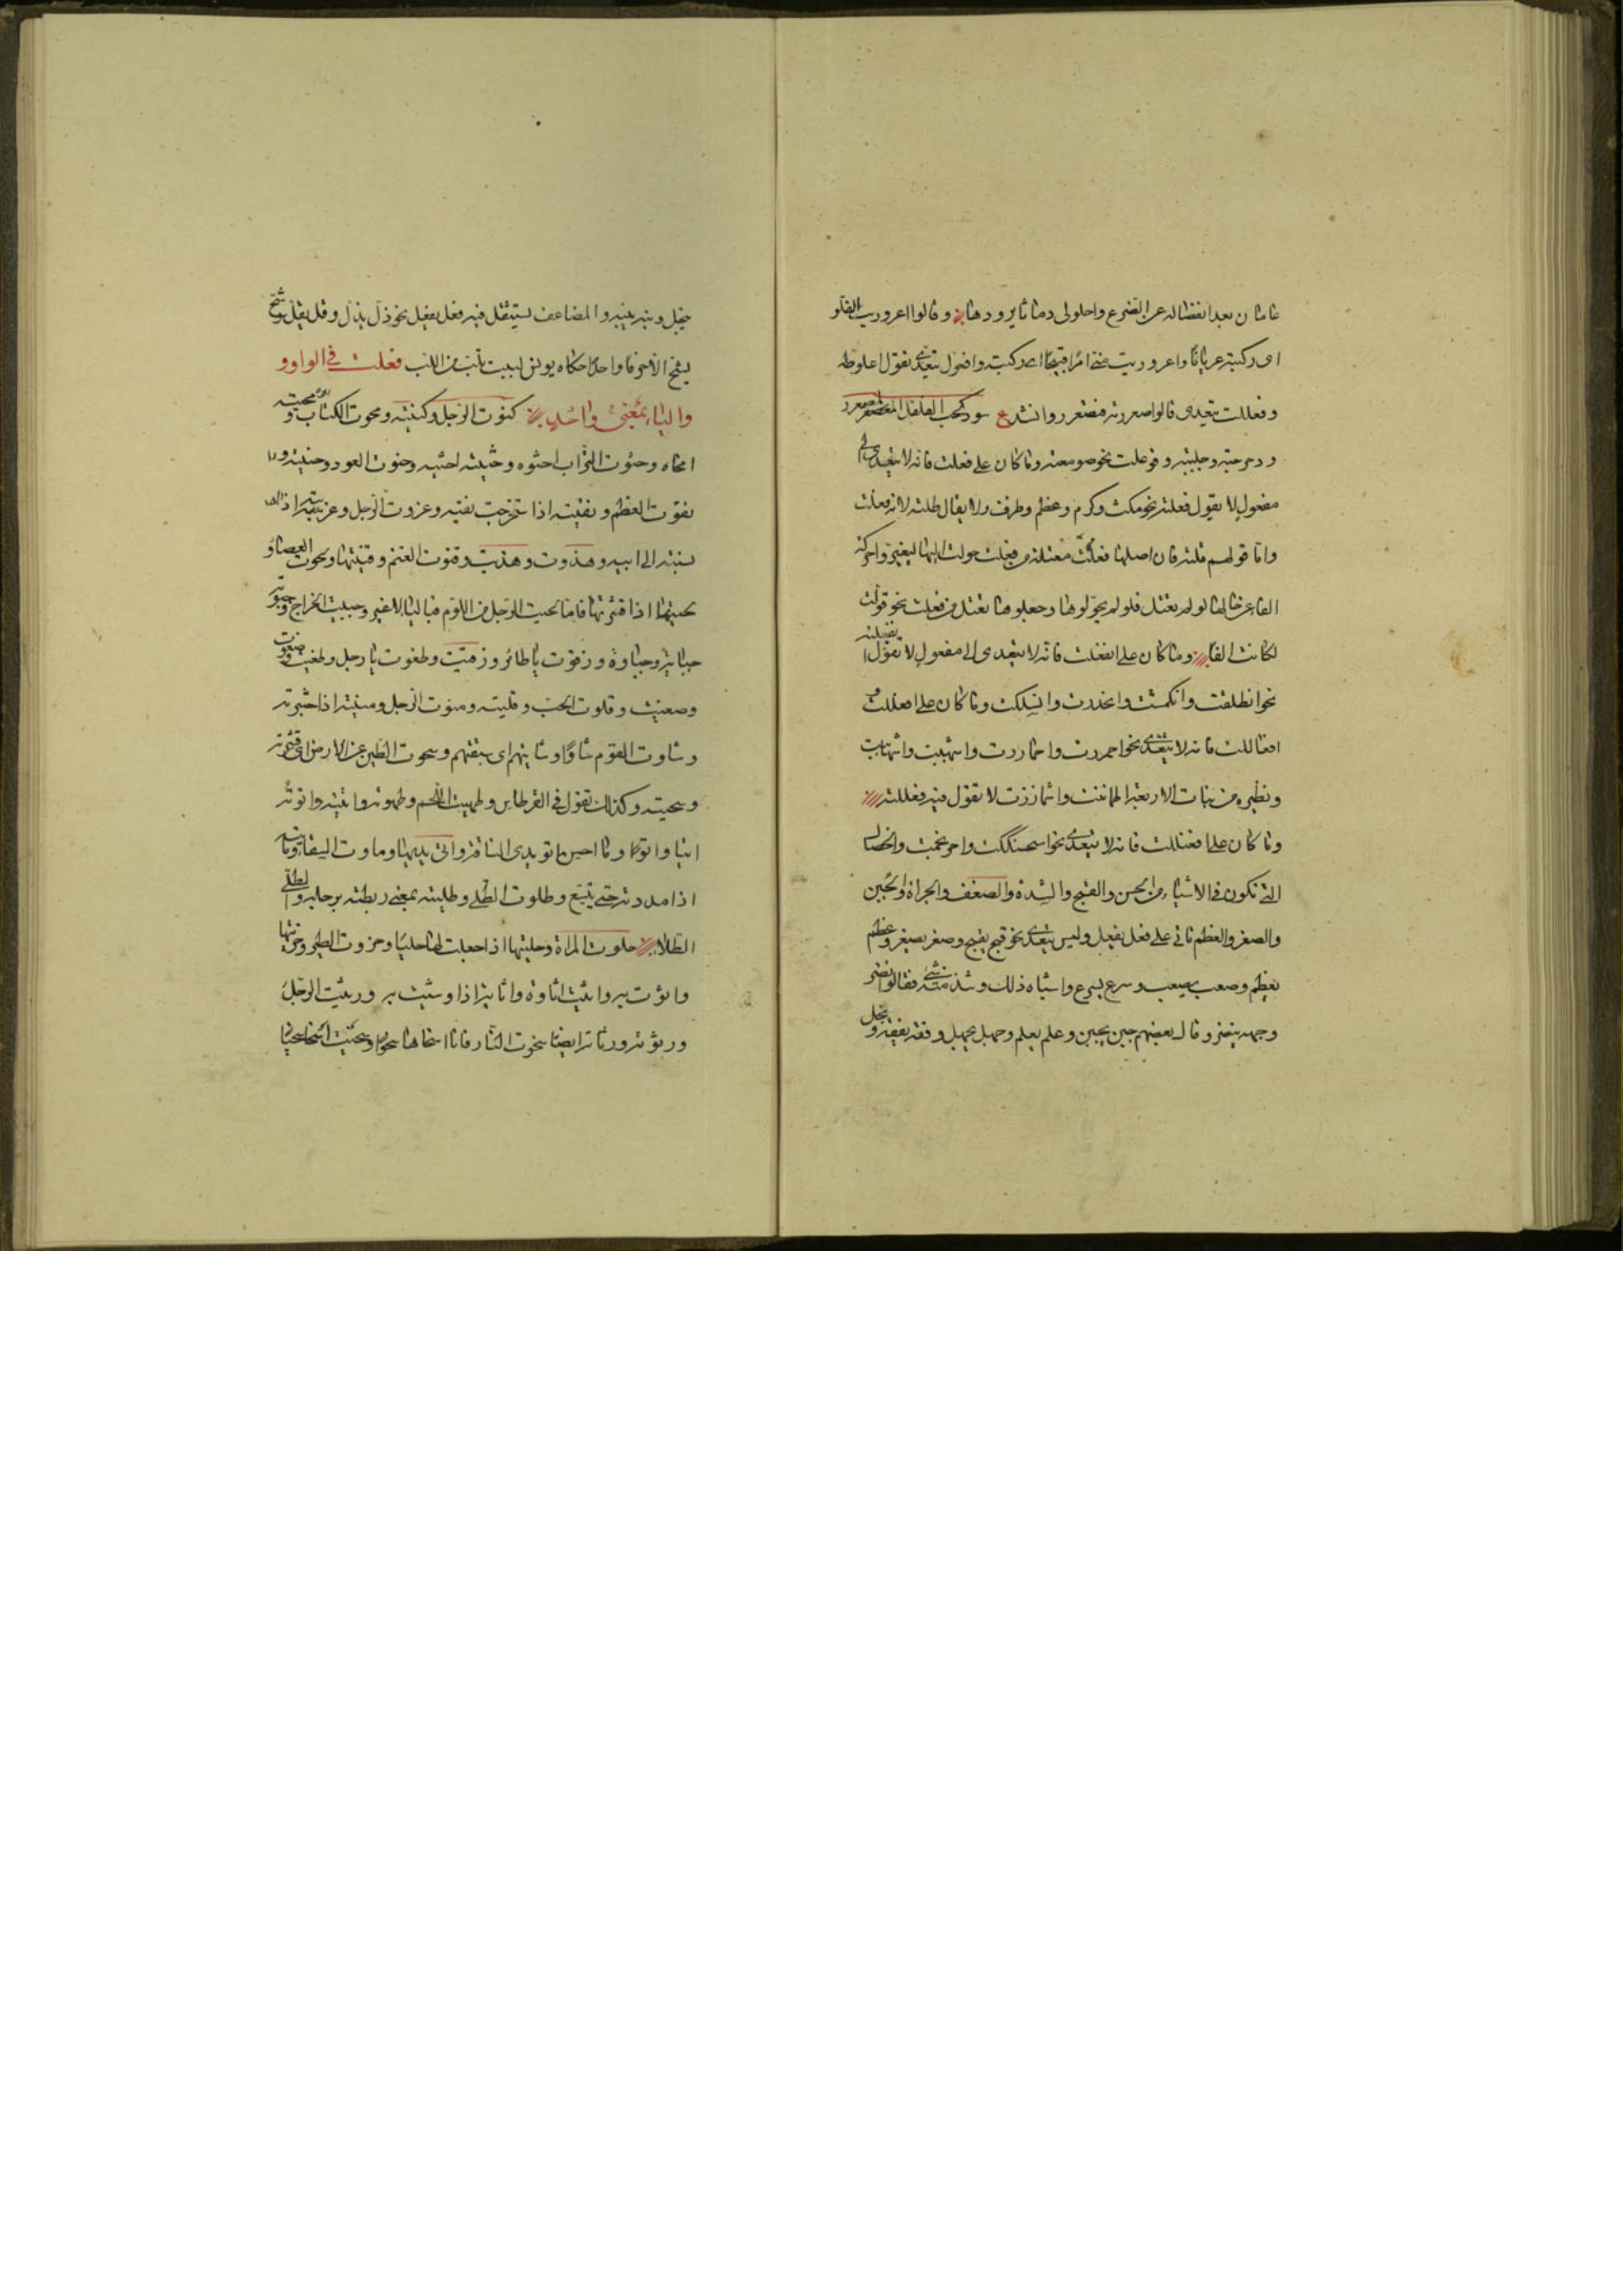 عامان بعد انفصاله عن الضرع واحلولى دماثا يرودها وقالوا اعروريت الفلو
اى ركبته عريانا واعروريت منى امرا قبيحا اى ركبته وافعول يتعدى تقول اعلوطه
وفعللت يتعدى قالوا صعررته فتصعرر وانشد ع سود كحب الفلفل المصعرر
ودحرجته وجلببته وفوعلت نحو صومعته وما كان على فعلت فانه لا يتعدى الى
مفعول لا يقول فعلته نحو مكث وكرم وعظم وظرف ولا يقال طلته لانه فعلت
واما قولهم قلته فان اصلها فعلت معتلة من فعلت حولت اليها ليغيروا حركة
الفاء عن حالها لو لم يعتل فلو لم يحولوها وجعلوها يعتل من فعلت نحو قولت
لكانت الفا وما كان على انفعلت فانه لا يتعدى الى مفعول لا تقول انفعلته
نحو انطلقت وانكمشت وانحدرت وانسلكت وما كان على افعللت و
افعاللت فانه لا يتعدى نحو احمررت واحماررت واشهببت واشهاببت
ونظيره من بنات الاربعة اطماننت واشمأززت لا تقول فيه فعللته
وما كان على افعنللت فانه لا يتعدى نحو اسحنككت واحرنجمت والخصال
التى تكون فى الاشياء من الحسن والقبح والشدة والضعف والجراة والجبن
والصغر والعظم تاتى على فعل يفعل وليس يتعدى نحو قبح يقبح وصغر يصغر وعظم
يعظم وصعب يصعب وسرع يسرع واشباه ذلك وشذ منه شئ فقالوا نضر
وجهه ينضر وقال بعضهم جبن يجبن وعلم يعلم وجهل يجهل وفقه يفقه وبخل
يبخل ونبه ينبه والمضاعف يستثقل فيه فعل يفعل نحو ذل يذل وقل يقل وشح
يشح الا حرفا واحدا حكاه يونس لببت تلب من اللب فعلت فى الواو و
والياء بمعنى واحد كنوت الرجل وكنيته ومحوت الكتاب ومحيته
امحاه وحثوت التراب احثوه وحثيته احثيه وحنوت العود وحنيته و
نقوت العظم ونقيته اذا استخرجت نقيه وعزوت الرجل وعزيته اذا
نسبته الى ابيه وهذوت وهذيت وقنوت الغنم وقنيتها ولحوت العصا و
لحيتها اذا قشرتها فاما لحيت الرجل من اللوم فبالياء لا غير وجبيت الخراج وجبوته
جباية وجباوة وزقوت يا طائر وزقيت وطغوت يا رجل وطغيت وصغوت
وصغيت وقلوت الحب وقليته ومنوت الرجل ومنيته اذا اختبرته
وشاوت القوم شاوا وشايتهم اى سبقتهم وسحوت الطين عن الارض اى قشرته
وسحيته وكذلك تقول فى القرطاس وطهيت اللحم وطهوته واتيته واتوته
اتيا واتوا وما احسن اتو يدى الناقة واتى يديها وماوت السقاء ومايته
اذا مددته حتى يتسع وطلوت الطلى وطليته بمعنى ربطته برجله والطلى
الطلاء حلوت المراة وحليتها اذا جعلت لها حليا وحزوت الطير وحزيتها
واثوت به واثيت اثاوة واثاية اذا وشيت به ورثيت الرجل
ورثوته ورثاته ايضا سخوت النار فانا اسخاها سخوا وسخيت اسخا سخيا